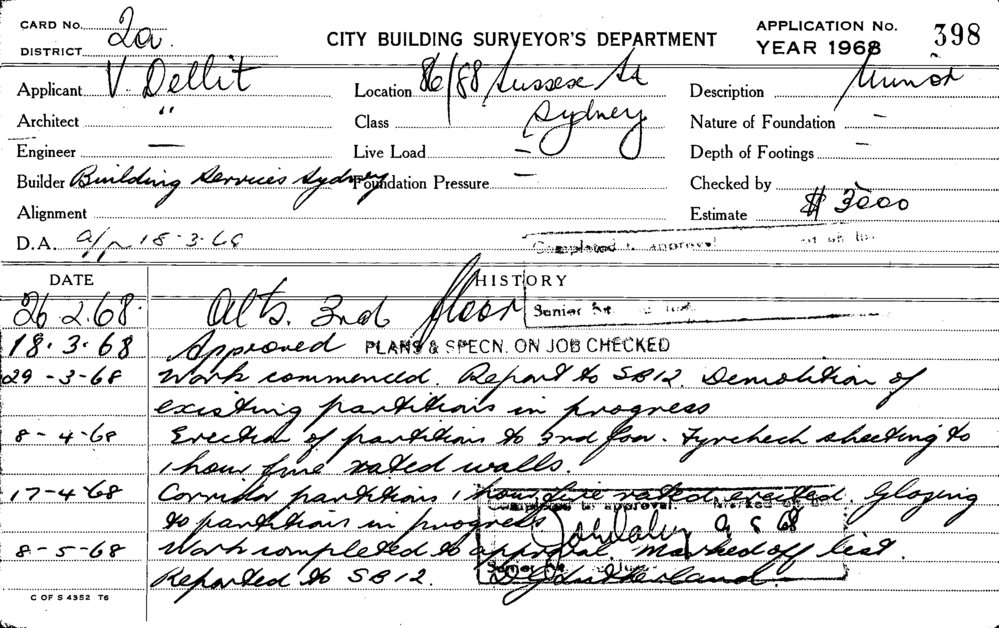 CARD No. 2a. CITY BUILDING SURVEYOR'S DEPARTMENT APPLICATION No. 398
DISTRICT YEAR 1968
Applicant V. Dellit Location 86/88 Sussex St Description Minor
Architect " Class Sydney Nature of Foundation –
Engineer — Live Load – Depth of Footings –
Builder Building Services Sydney Foundation Pressure – Checked by –
Alignment Estimate $ 3000
D.A. 18-3-68 Completed to approval
DATE HISTORY
26.2.68. Alts. 3rd floor Senior
18.3.68 Approved PLANS & SPECN. ON JOB CHECKED
29-3-68 Work commenced. Report to SB12. Demolition of
existing partitions in progress
8-4-68 Erection of partitions to 3rd floor. Fyrchech sheeting to
1 hour fire rated walls.
17-4-68 Corridor partitions 1 hour fire rated erected. Glazing
Completed to approval. Marked off
to partitions in progress 9 5 68
8-5-68 Work completed to approval. Marked off list.
Reported to SB12. Senior D G Sutherland.
C OF S 4352 T6